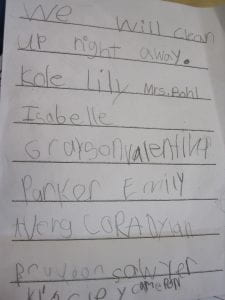 We will clean
up right away.
Kole Lily Mrs. Pohl
Isabelle
Grayson Valentina
Parker Emily
Avery CORA Dylan
sawyer
CAMERON